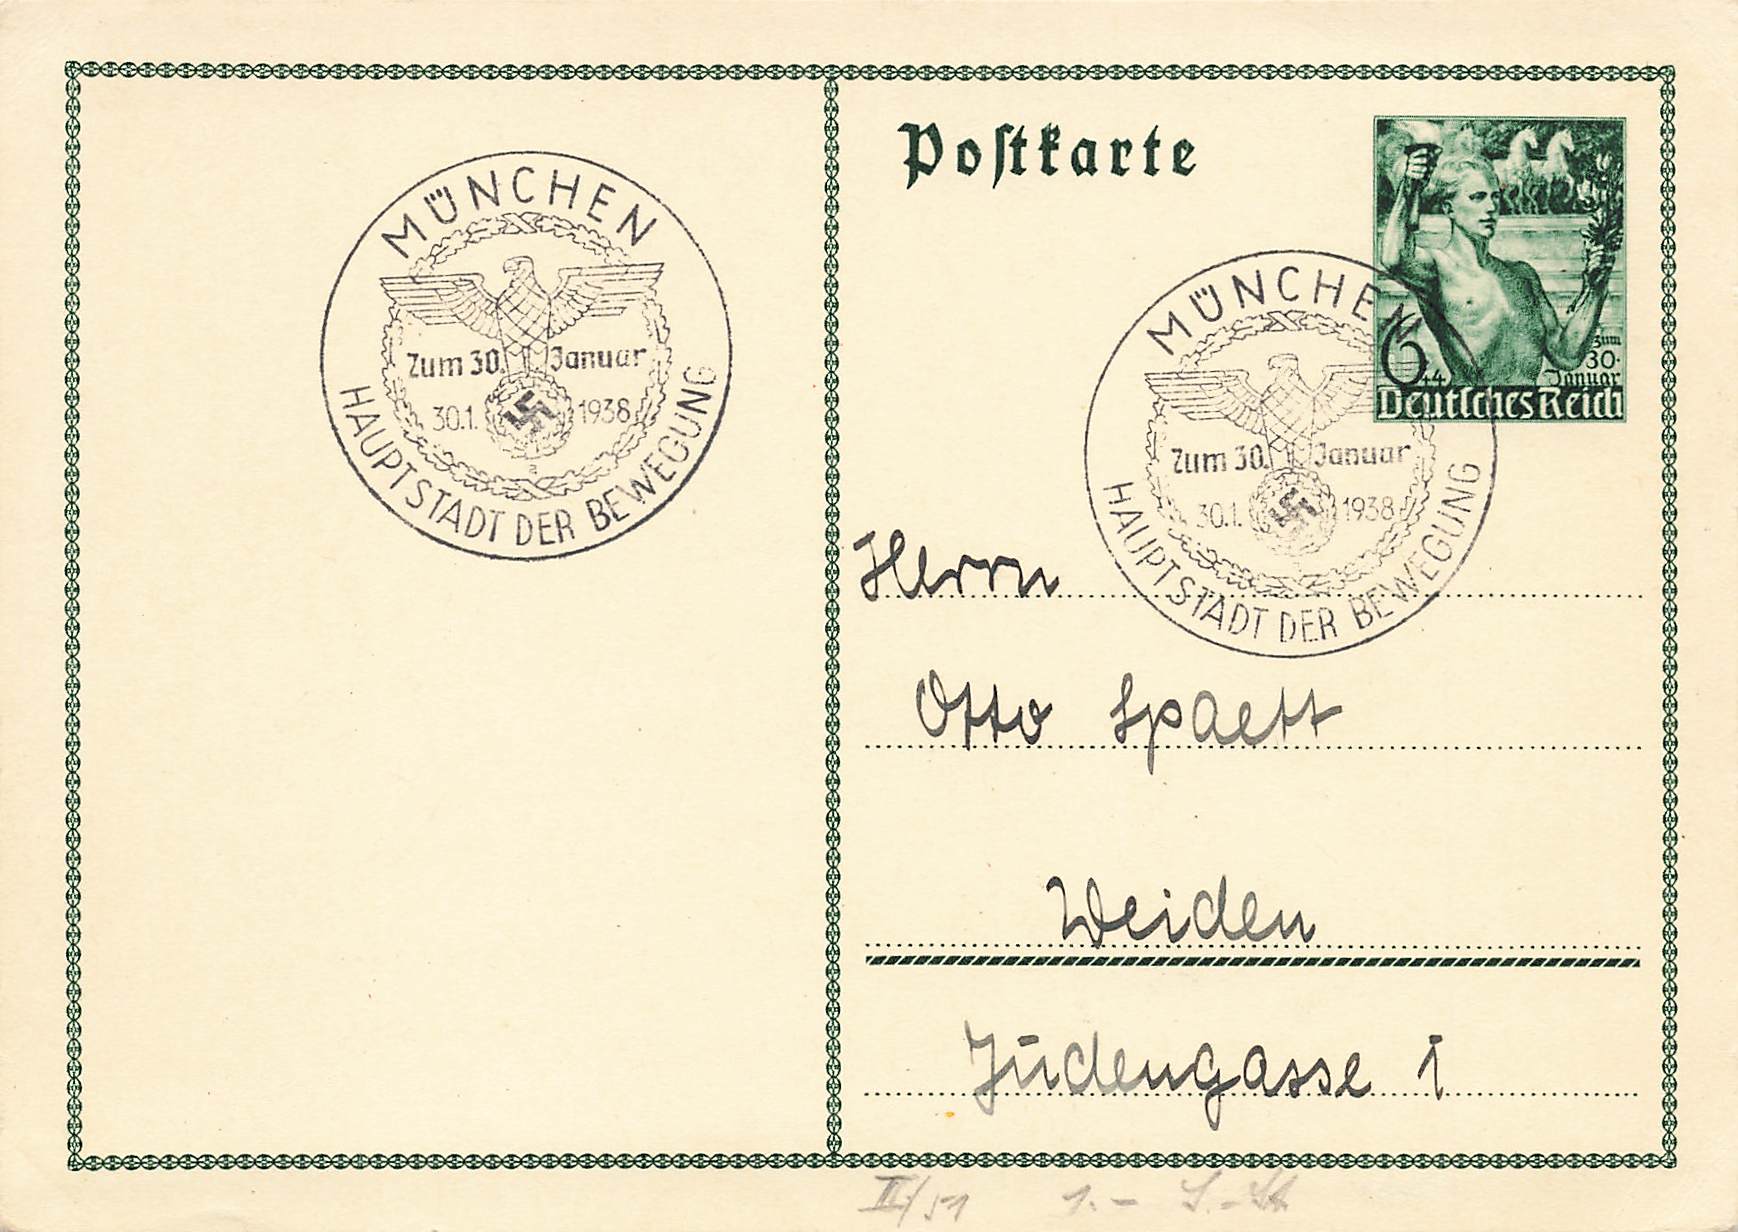 MÜNCHEN
Zum 30. Januar
30.1. 1938
a
HAUPTSTADT DER BEWEGUNG
Postkarte
6+4
zum
30.
Januar
Deutsches Reich
MÜNCHEN
Zum 30. Januar
30.1. 1938
HAUPTSTADT DER BEWEGUNG
Herrn
Otto Spaett
Weiden
Judengasse 1
II/51 1.-